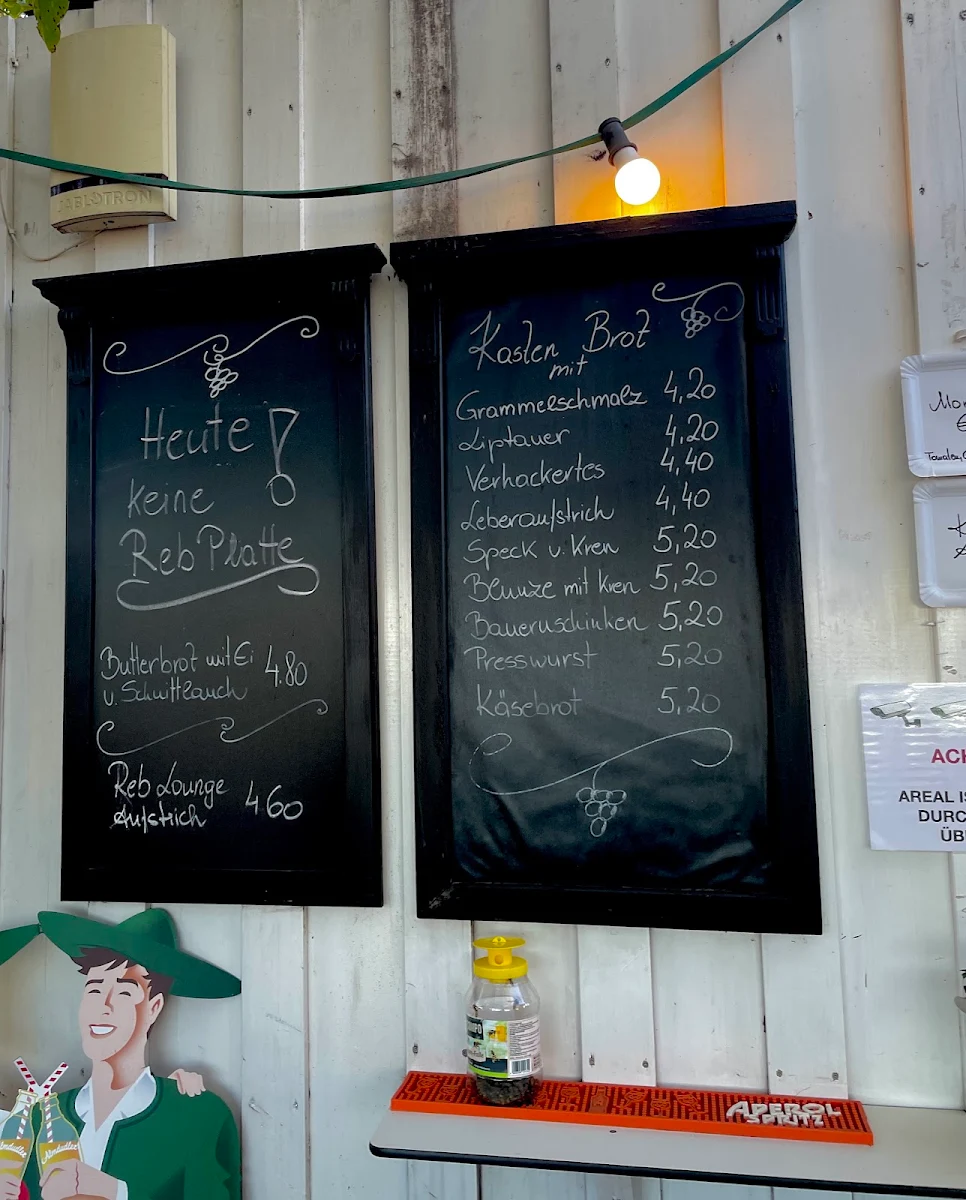 JABLOTRON
Heute!
keine
Reb Platte
Butterbrot mit Ei
u. Schnittlauch 4.80
Reb Lounge
Aufstrich 4 60
Kasten Brot
mit
Grammelschmalz 4,20
Liptauer 4,20
Verhackertes 4,40
Leberaufstrich 4,40
Speck u. Kren 5,20
Blunze mit Kren 5,20
Bauernschinken 5,20
Presswurst 5,20
Käsebrot 5,20
AREAL
DURC
ÜB
Almdudler
Almdudler
APEROL
SPRITZ